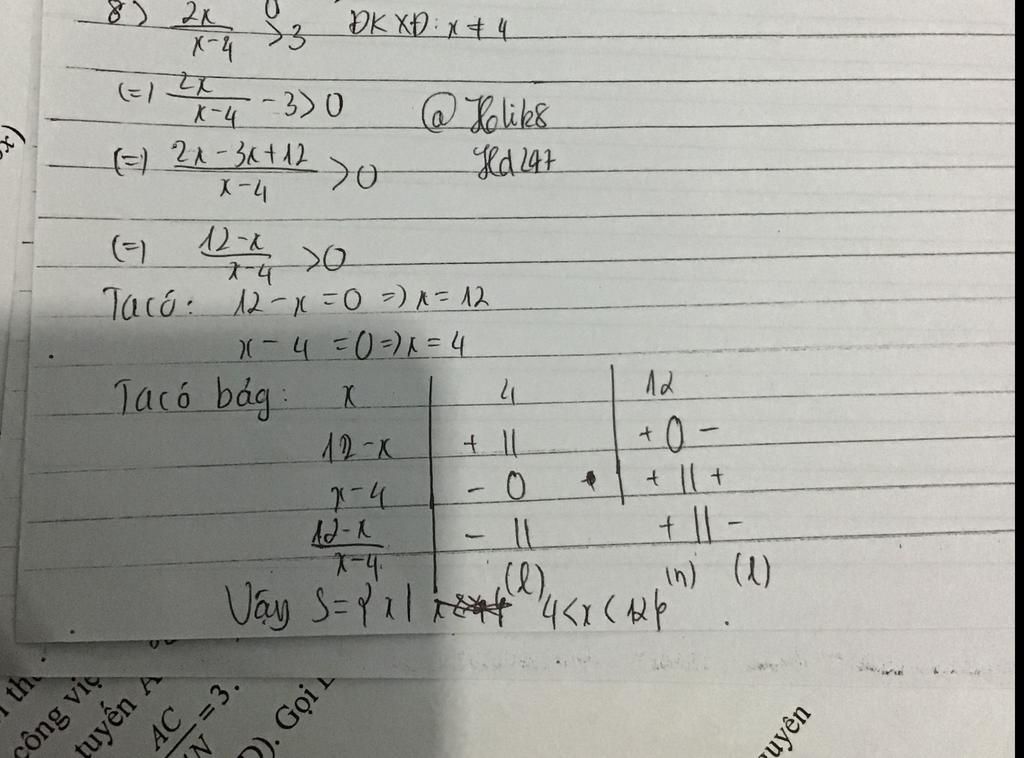 8) 2x/x-4 > 3 ĐKXĐ: x ≠ 4
(=) 2x/x-4 - 3 > 0 @Hlik8
(=) 2x-3x+12/x-4 > 0 Hd247
(=) 12-x/x-4 > 0
Ta có: 12-x=0 => x=12
x-4=0 => x=4
Ta có bág: x 4 12
12-x + || + 0 -
x-4 - 0 + || +
12-x/x-4 - || + || -
(l) (n) (l)
Vậy S={x| 4<x<12}
công việ
tuyến A
AC/N = 3.
D). Gọi
guyên